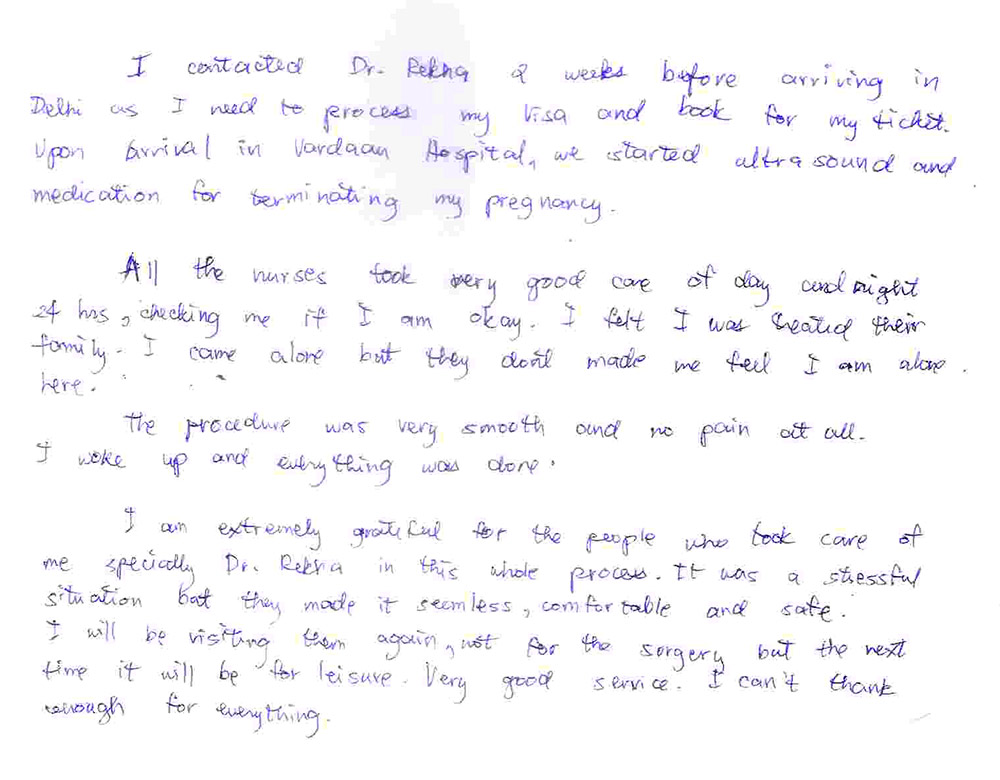 I contacted Dr. Rekha 2 weeks before arriving in
Delhi as I need to process my Visa and book for my ticket.
Upon arrival in Vardaan Hospital, we started ultra sound and
medication for terminating my pregnancy.
All the nurses took very good care of day and night
24 hrs, checking me if I am okay. I felt I was treated their
family. I came alone but they don't made me feel I am alone.
here.
The procedure was very smooth and no pain at all.
I woke up and everything was done.
I am extremely grateful for the people who took care of
me specially Dr. Rekha in this whole process. It was a stressful
situation but they made it seemless, comfortable and safe.
I will be visiting them again, not for the sorgery but the next
time it will be for leisure. Very good service. I can't thank
enough for everything.